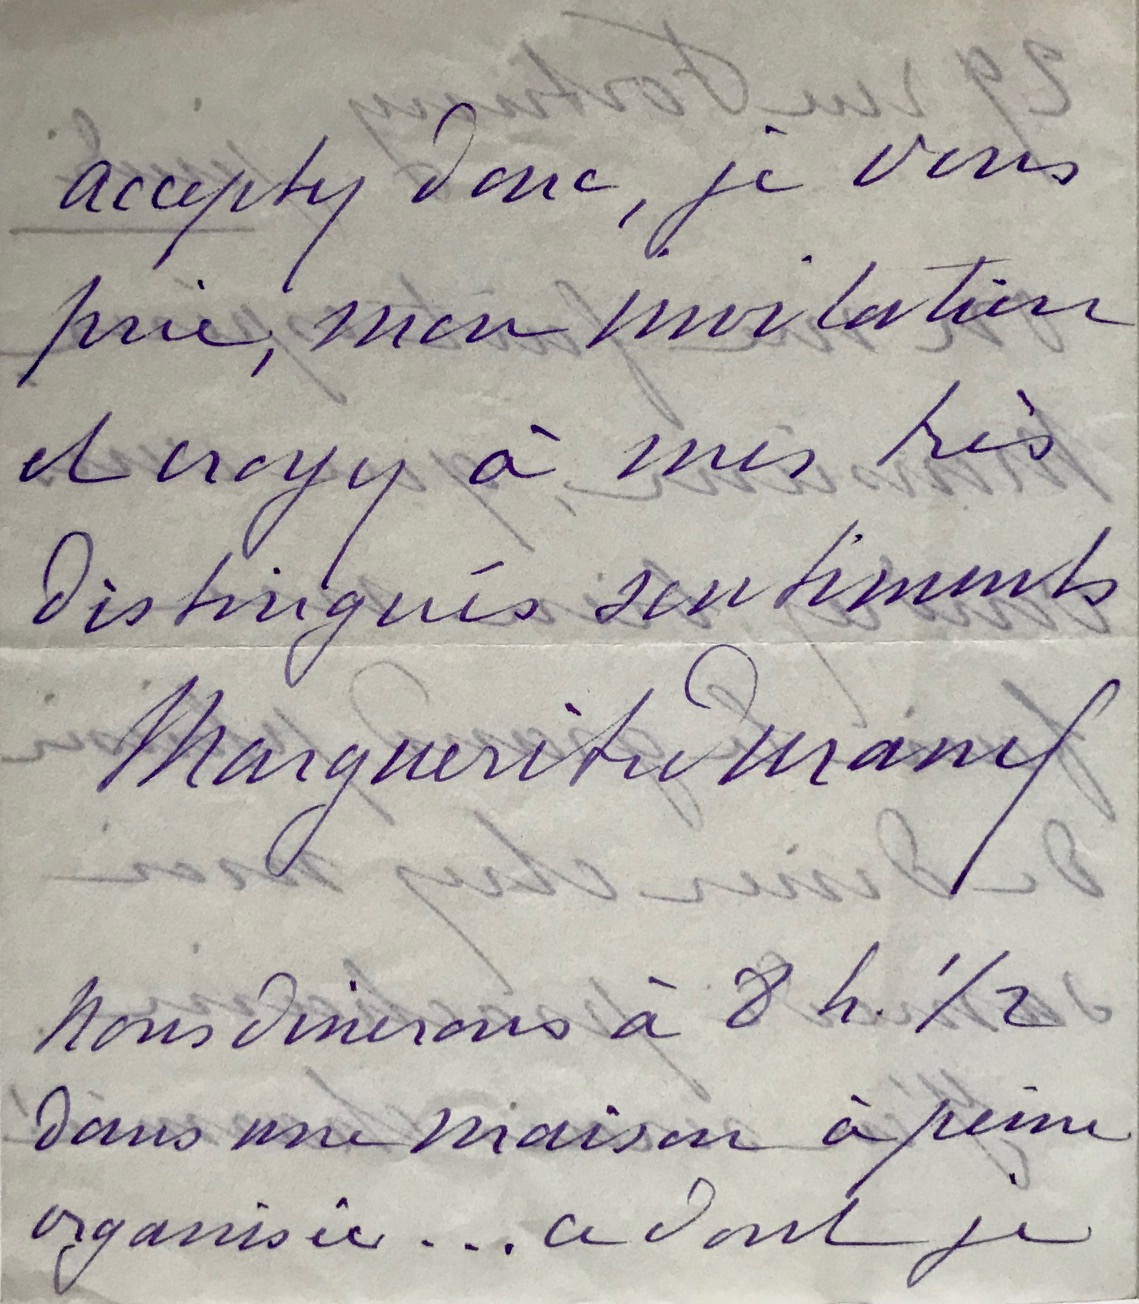 acceptez donc, je vous
prie, mon invitation
et croyez à mes très
distingués sentiments
Marguerite Durand
Nous dinerons à 8 h. 1/2
dans une maison à peine
organisée... ce dont je